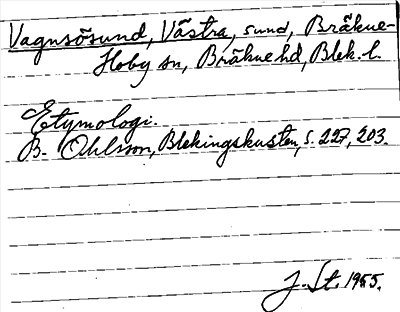 Vagnsösund, Västra, sund, Bräkne-
Hoby sn, Bräkne hd, Blek. l.
Etymologi.
B. Ohlsson, Blekingskusten, s. 227, 203.
J. St. 1955.